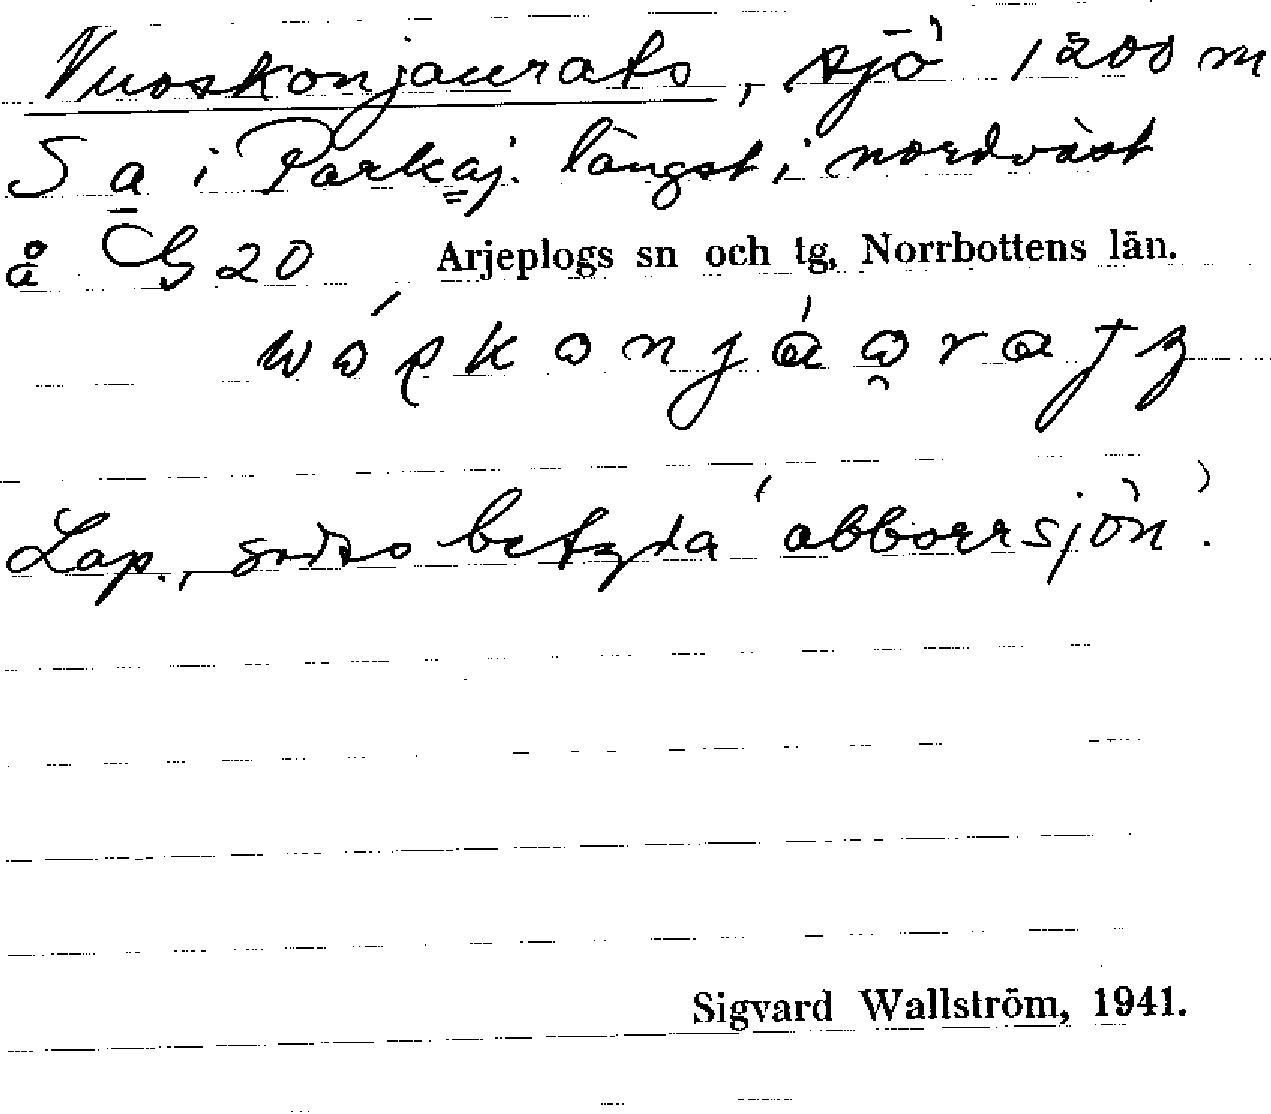 Vuoskonjaurats, sjö 1200 m
S a i Parkaj. längst i nordväst
å G 20 Arjeplogs sn och tg, Norrbottens län.
Lap., betyda 'abborrsjön'.
Sigvard Wallström, 1941.